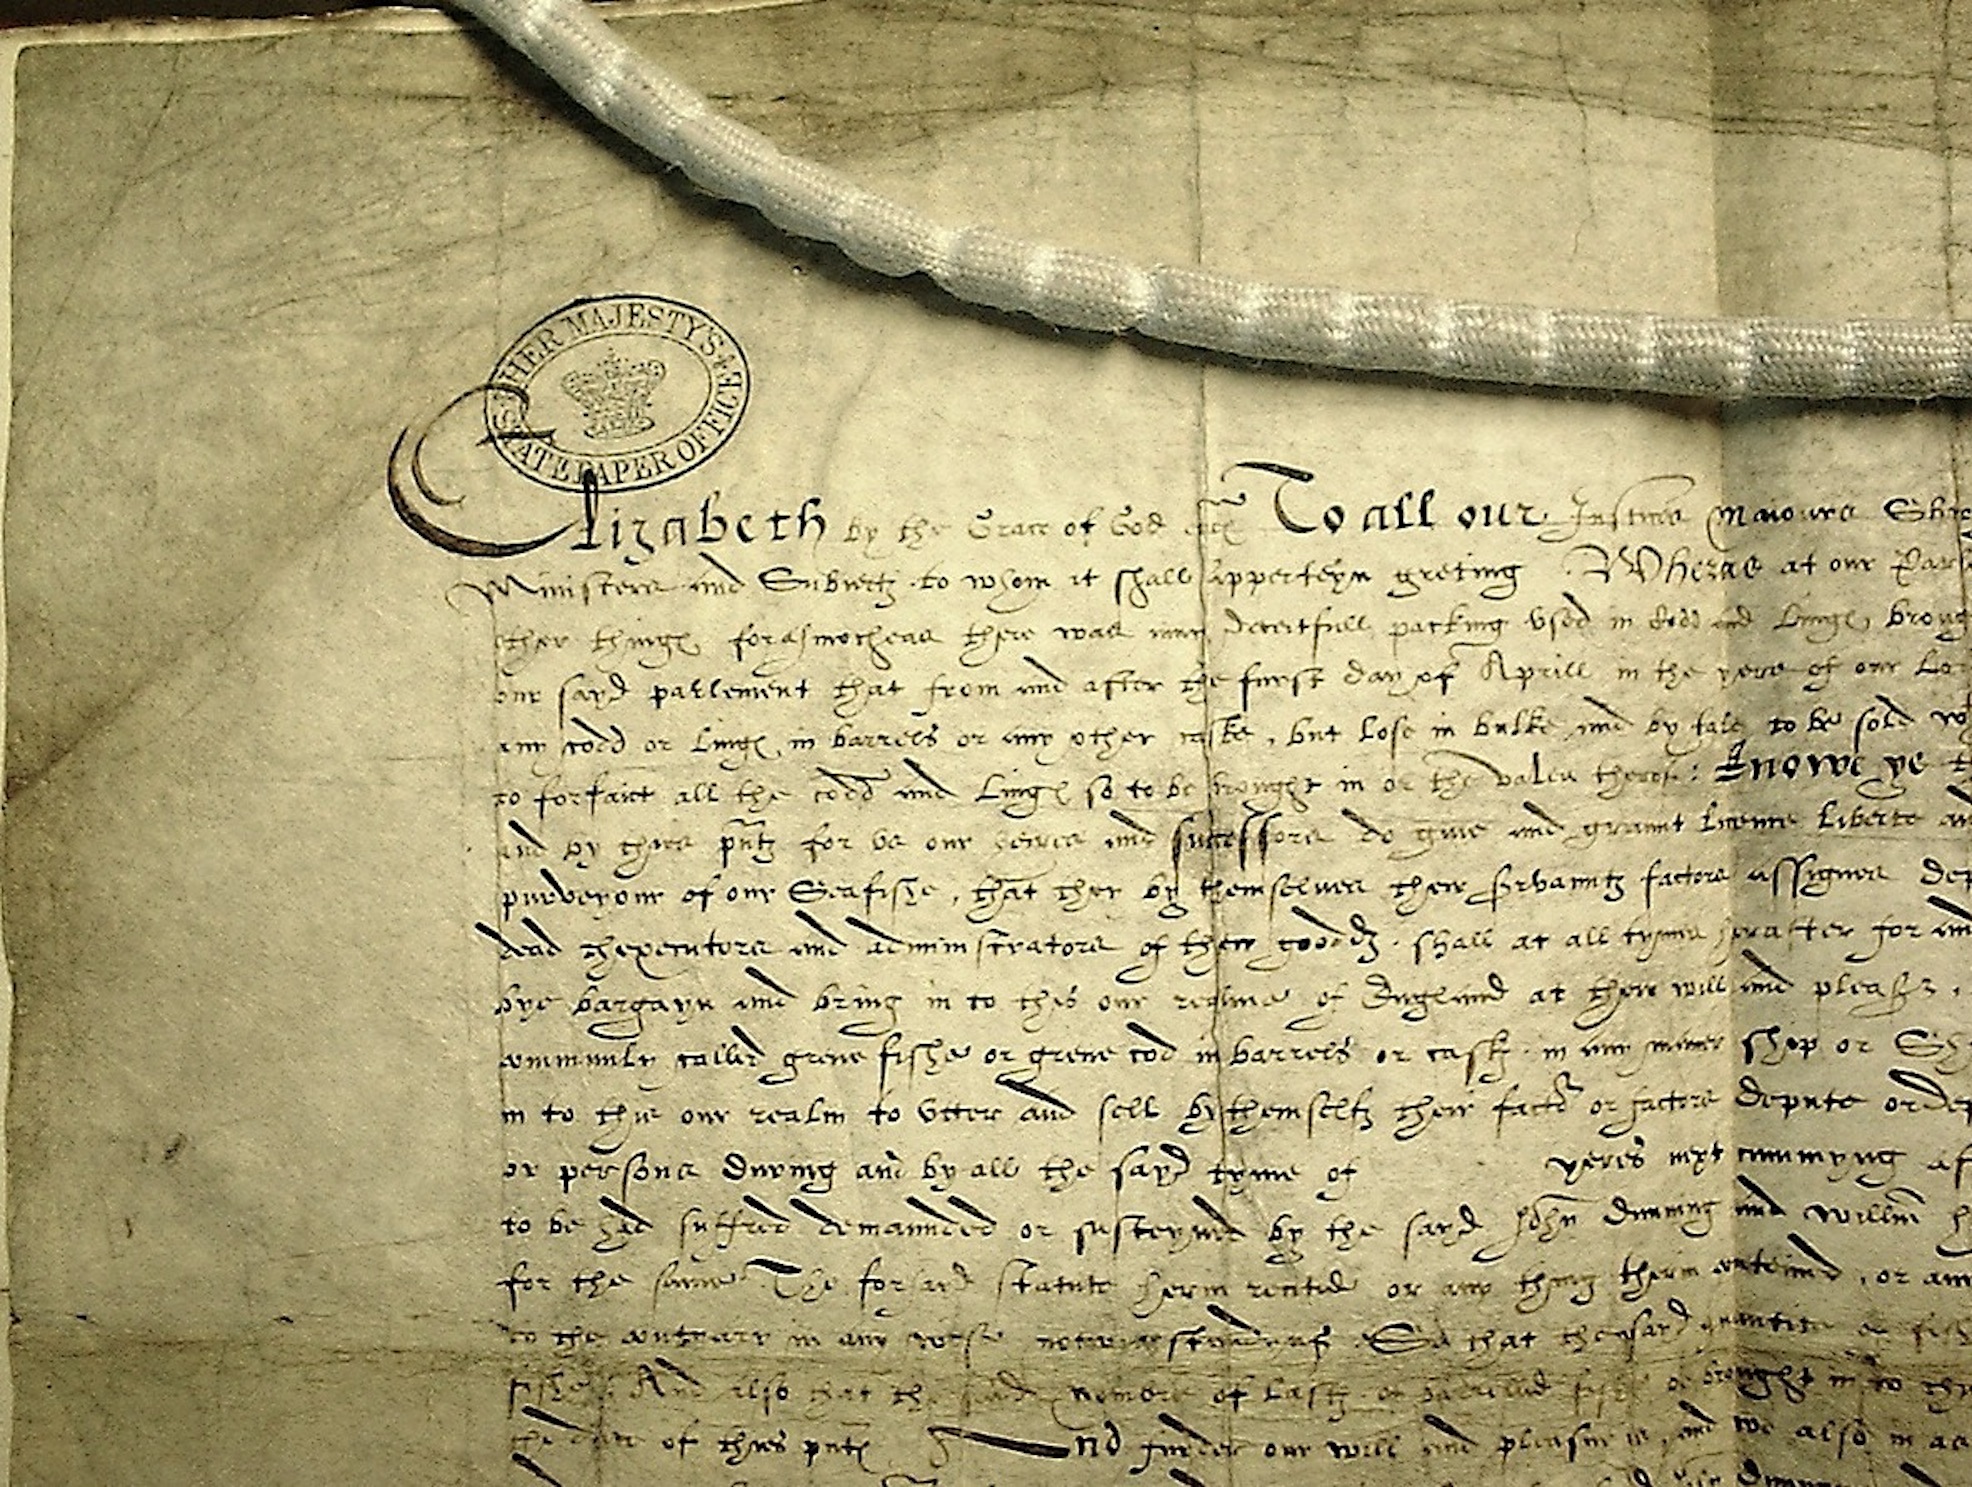 HER MAJESTY'S STATE PAPER OFFICE
Elizabeth by the Grace of God &c To all our Justices Maiours
Ministers and Subiectz to whom it shall apperteyn greting Wheras at our
other things forasmocheas there was deceitfull packing vsed in Codd and Linge
our sayd parlement that from and after the furst day of Aprill in the yere of our
any codd or Linge in barrels or any other caske, but lose in bulke and by tale to be sold
to forfaict all the codd and Linge so to be brought in or the valew therof: Knowe ye
and by thies pntz for vs our heires and successors do giue and graunt licence liberte
purveyour of our Seafishe, that they by themselues their servauntz factors assignes
dead thexecutors and administrators of their goodz shall at all tymes herafter for
bye bargayn and bring in to this our realme of England at their will and
communly called grene fishe or grene cod in barrels or cask in any maner shop or
in to this our realm to vtter and sell by themselfz their factor or factors depute or
or persons during and by all the sayd tyme of yeres next cummyng
to be had suffred demaunded or susteyned by the sayd John and Willm
for the same The forsayd statute herin recited or any thing therin conteined, or
to the contrary in any wise notwithstanding So that the sayd quantite of
fishe And also that the nombre of Last of barrelled fishe be brought in to
the date of thies pntz And furder our will and pleasure is, and we also